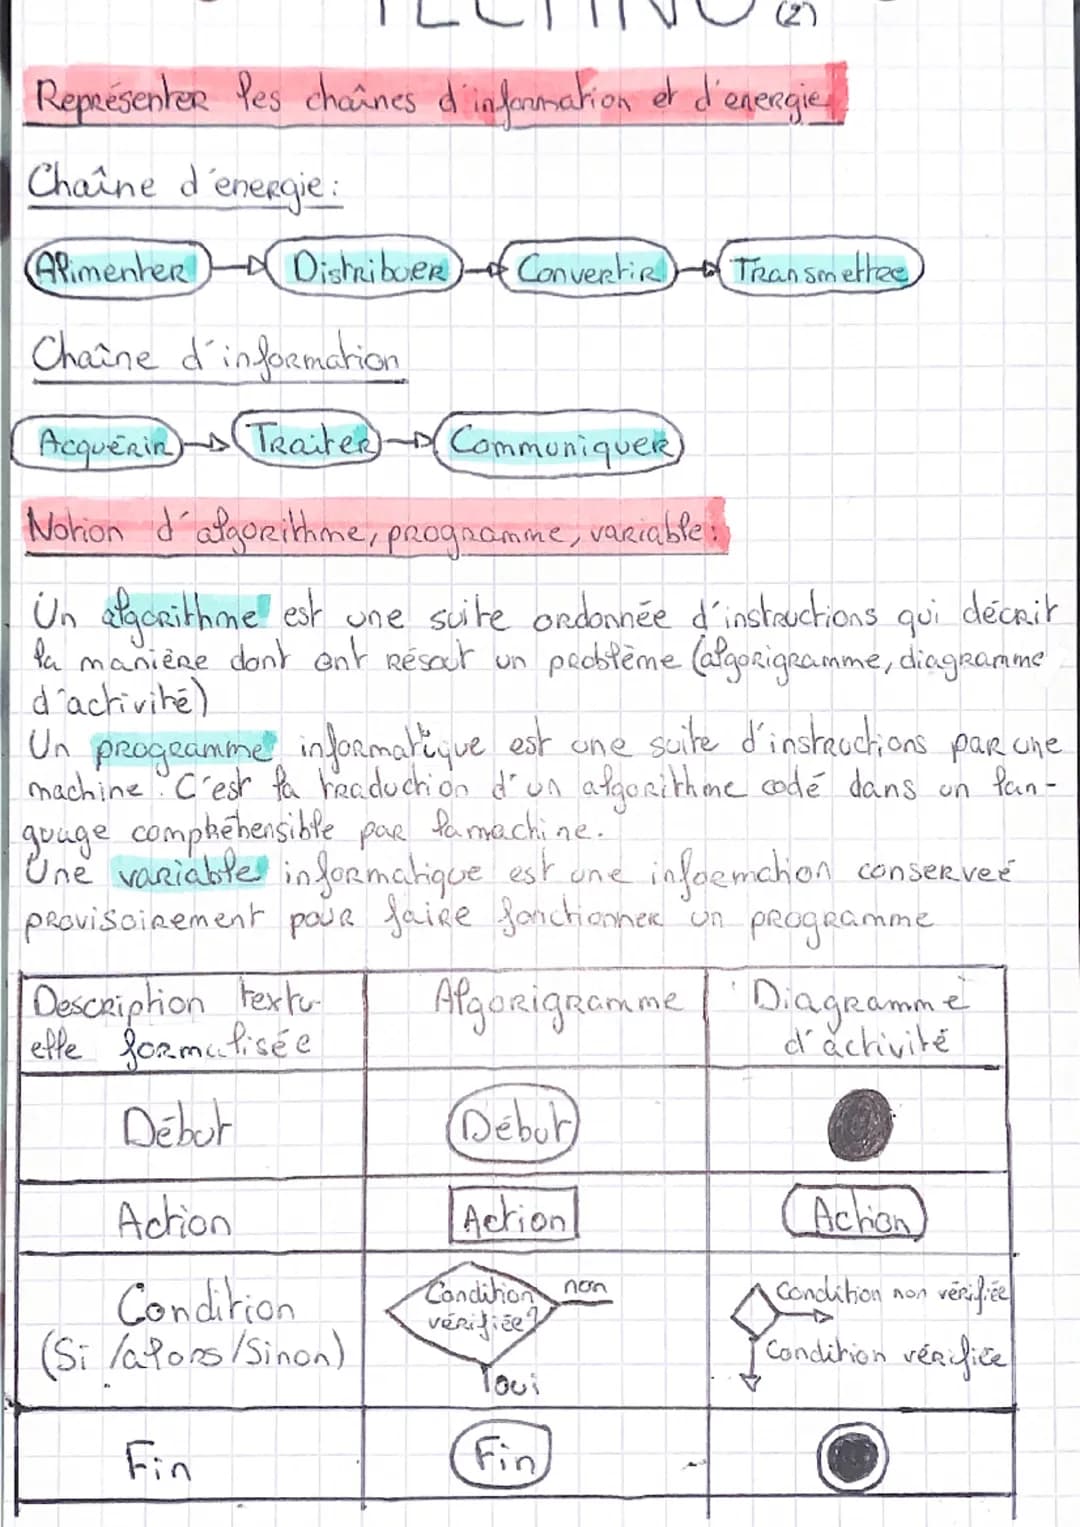 TECHNO (2)
Représenter les chaînes d'information et d'énergie
Chaîne d'énergie :
Alimenter Distribuer Convertir Transmettre
Chaîne d'information
Acquérir Traiter Communiquer
Notion d'algorithme, programme, variable :
Un algorithme est une suite ordonnée d'instructions qui décrit
la manière dont ont résout un problème (algorigramme, diagramme
d'activité)
Un programme informatique est une suite d'instructions par une
machine. C'est la traduction d'un algorithme codé dans un lan-
guage compréhensible par la machine.
Une variable informatique est une information conserveé
provisoirement pour faire fonctionner un programme
Description textu- Algorigramme Diagramme
elle formalisée d'activité
Début Début
Action Action Action
Condition Condition non Condition non vérifiée
vérifiée?
(Si /alors/Sinon) Condition vérifiée
oui
Fin Fin